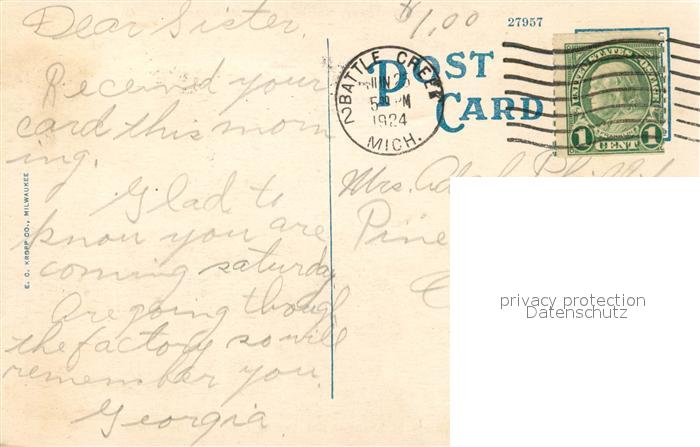 Dear Sister.
Received your
card this morn
ing.
Glad to
know you are
coming saturday
Are going though
the factory so will
remember you.
Georgia
E. C. KROPP CO., MILWAUKEE
$1,00
27957
POST
CARD
BATTLE CREEK
JUN
5 PM
1924
MICH.
2
UNITED STATES POSTAGE
FRANKLIN
1 CENT 1
Mrs.
Pine
privacy protection
Datenschutz